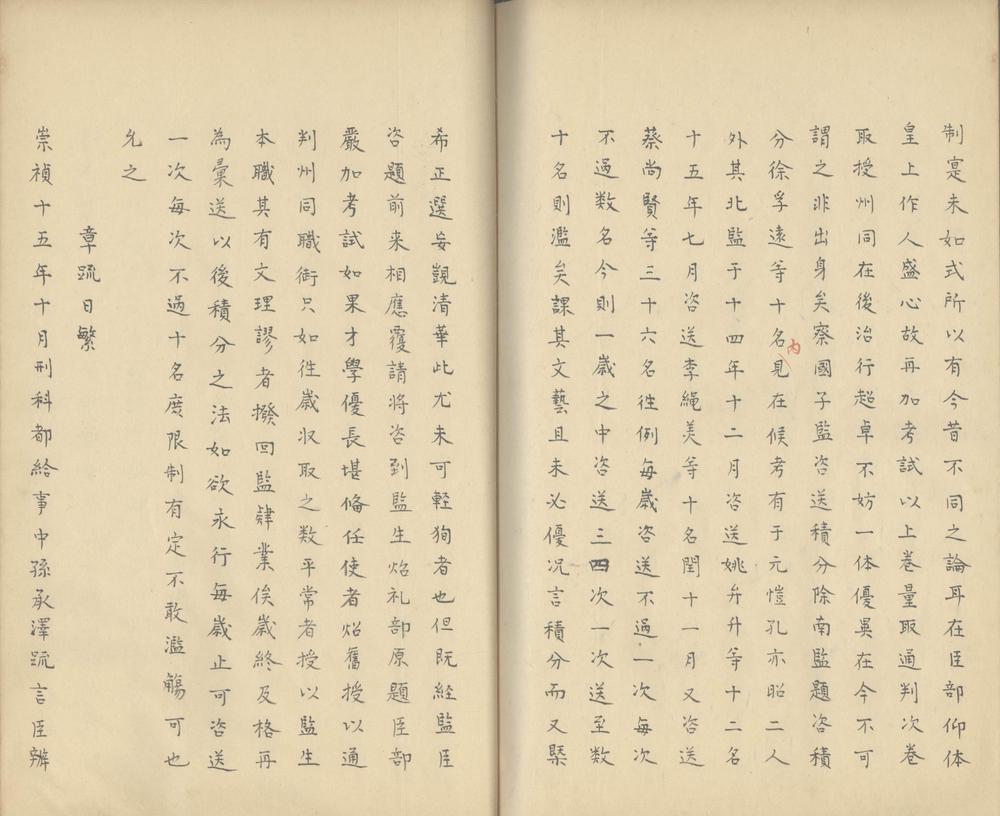 制寔未如式所以有今昔不同之論耳在臣部仰体
皇上作人盛心故再加考試以上卷量取通判次卷
取授州同在後治行超卓不妨一体優異在今不可
謂之非出身矣察國子監咨送積分除南監題咨積
分徐孚遠等十名內見在候考有于元愷孔亦昭二人
外其北監于十四年十二月咨送姚弁升等十二名
十五年七月咨送李繩美等十名閏十一月又咨送
蔡尚賢等三十六名徃例每歲咨送不過一次每次
不過数名今則一歲之中咨送三四次一次送至数
十名則濫矣課其文藝且未必優况言積分而又槩
希正選妄覬清華此尤未可輕狥者也但既経監臣
咨題前来相應覆請將咨到監生炤礼部原題臣部
嚴加考試如果才學優長堪俻任使者炤舊授以通
判州同職銜只如徃歲収取之数平常者授以監生
本職其有文理謬者撥回監肄業俟歲終及格再
為彙送以後積分之法如欲永行每歲止可咨送
一次每次不過十名庶限制有定不敢濫觴可也
允之
章疏日繁
崇禎十五年十月刑科都給事中孫承澤疏言臣辨